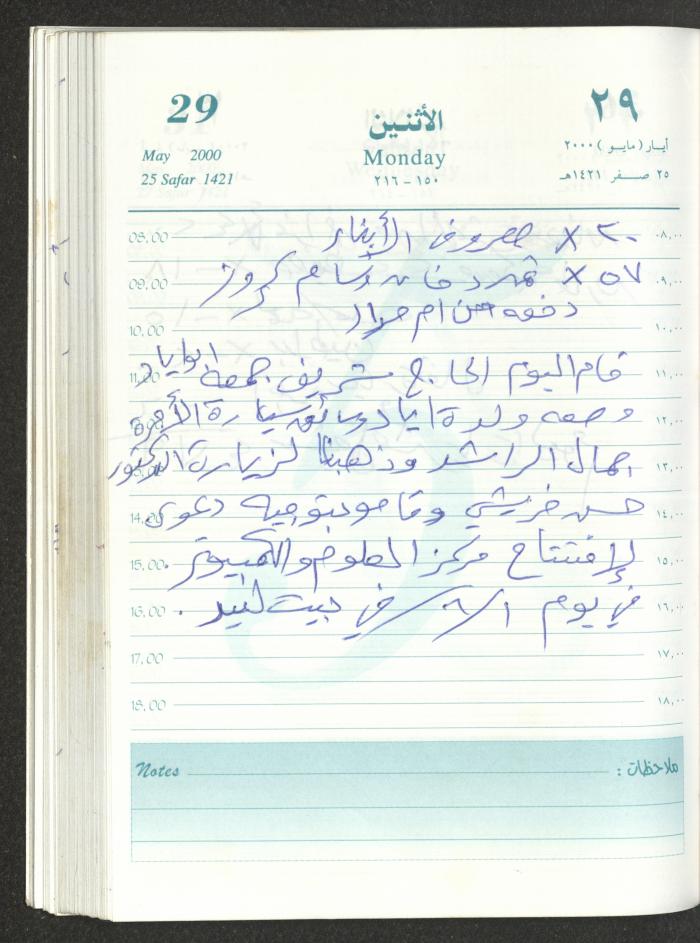 29
الأثنين
٢٩
May 2000
Monday
أيار (مايو) ٢٠٠٠
25 Safar 1421
٢١٦ - ١٥٠
٢٥ صفر ١٤٢١هـ
08.00 ٢٠ X مصروف الأبناء ٠٨,٠٠
09.00 ٥٧ X وسام ٠٩,٠٠
دفعه من ام مراد
10.00 ١٠,٠٠
قام اليوم الحاج شريف جمعه ابو اياد
11.00 ١١,٠٠
ومعه ولده اياد وسائق سيارة الأجرة
١٢,٠٠
جمال الراشد وذهبنا لزيارة الدكتور
13.00 ١٣,٠٠
حسن خريشي وقاموا بتوجيه دعوى
14.00 ١٤,٠٠
لإفتتاح مركز العلوم والكمبيوتر
15.00 ١٥,٠٠
في يوم ١/٦/ في بيت ليد .
16.00 ١٦,٠٠
17.00 ١٧,٠٠
18.00 ١٨,٠٠
Notes ملاحظات :